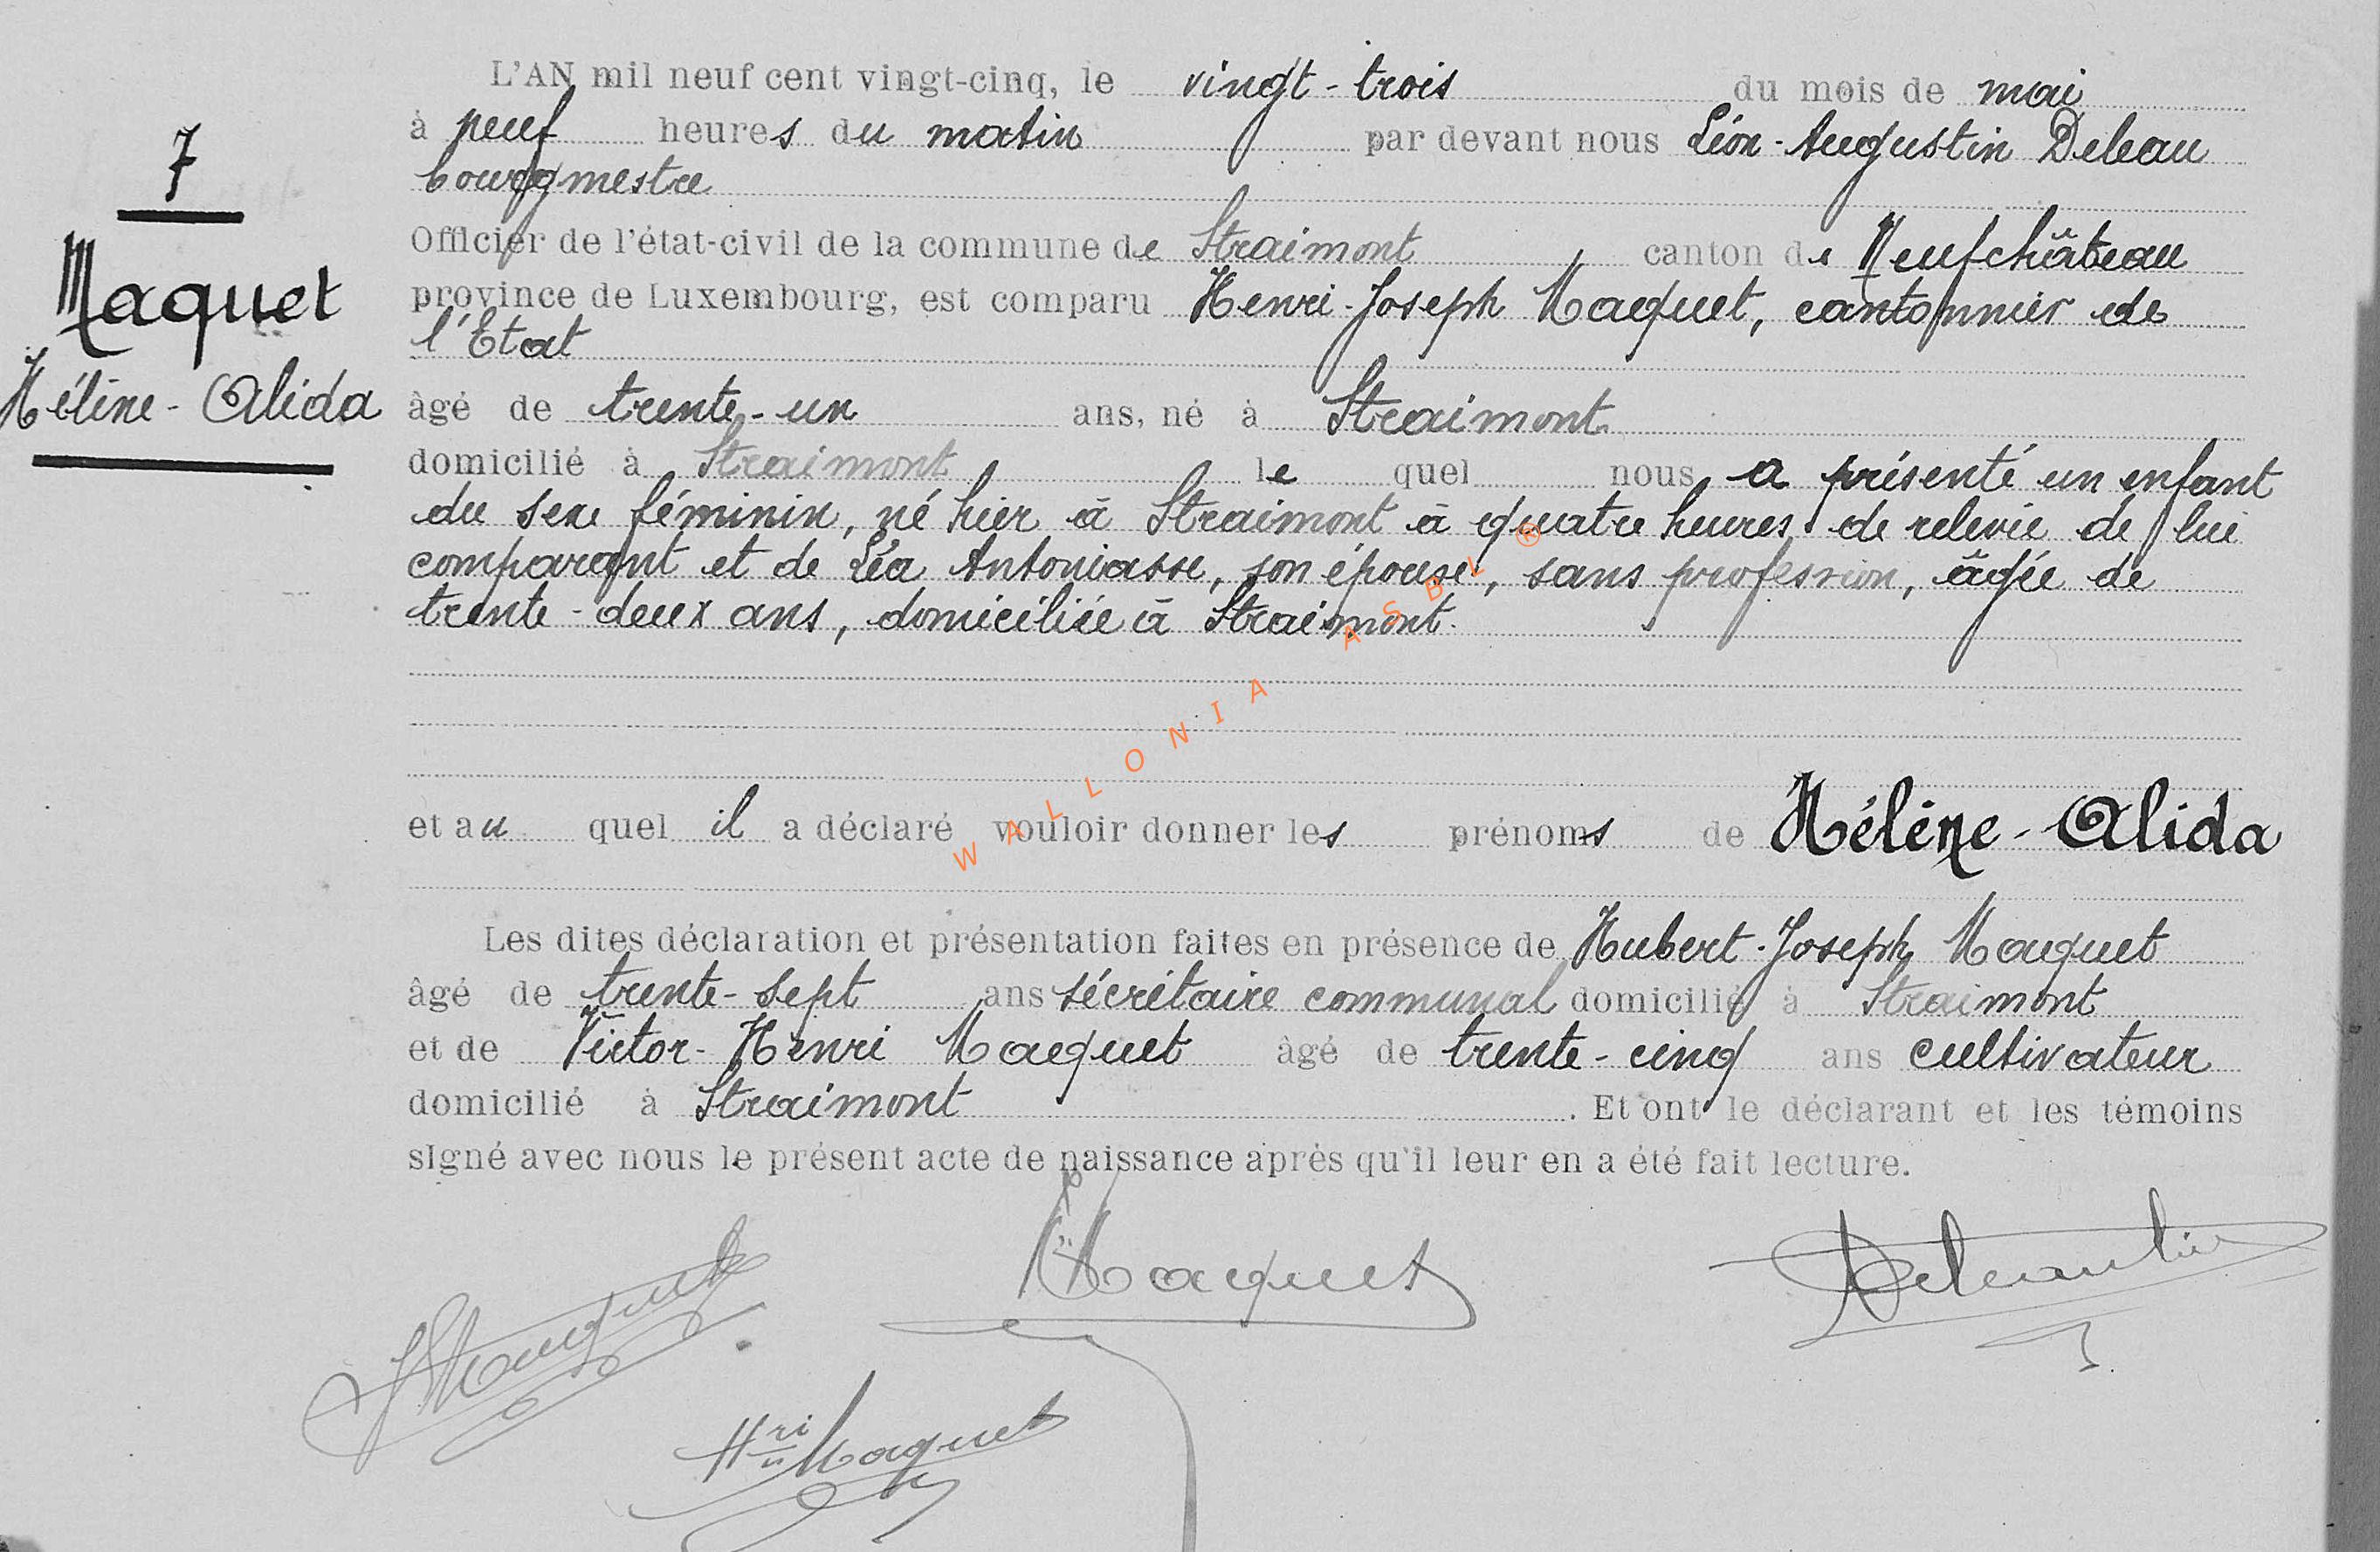 7
Maquet
Hélène-Alida
L'AN mil neuf cent vingt-cinq, le vingt-trois du mois de mai
à neuf heures du matin par devant nous Léon-Augustin Deleau
bourgmestre
Officier de l'état-civil de la commune de Straimont canton de Neufchâteau
province de Luxembourg, est comparu Henri-Joseph Maquet, cantonnier de
l'Etat
âgé de trente-un ans, né à Straimont
domicilié à Straimont lequel nous a présenté un enfant
du sexe féminin, né hier à Straimont à quatre heures de relevée de lui
comparant et de Léa Antoniasse, son épouse, sans profession, âgée de
trente-deux ans, domiciliée à Straimont.
et auquel il a déclaré vouloir donner les prénoms de Hélène-Alida
Les dites déclaration et présentation faites en présence de Hubert-Joseph Maquet
âgé de trente-sept ans sécrétaire communal domicilié à Straimont
et de Victor-Henri Maquet âgé de trente-cinq ans cultivateur
domicilié à Straimont. Et ont le déclarant et les témoins
signé avec nous le présent acte de naissance après qu'il leur en a été fait lecture.
Maquet
Maquet
Hri Maquet
WALLONIA ASBL ®